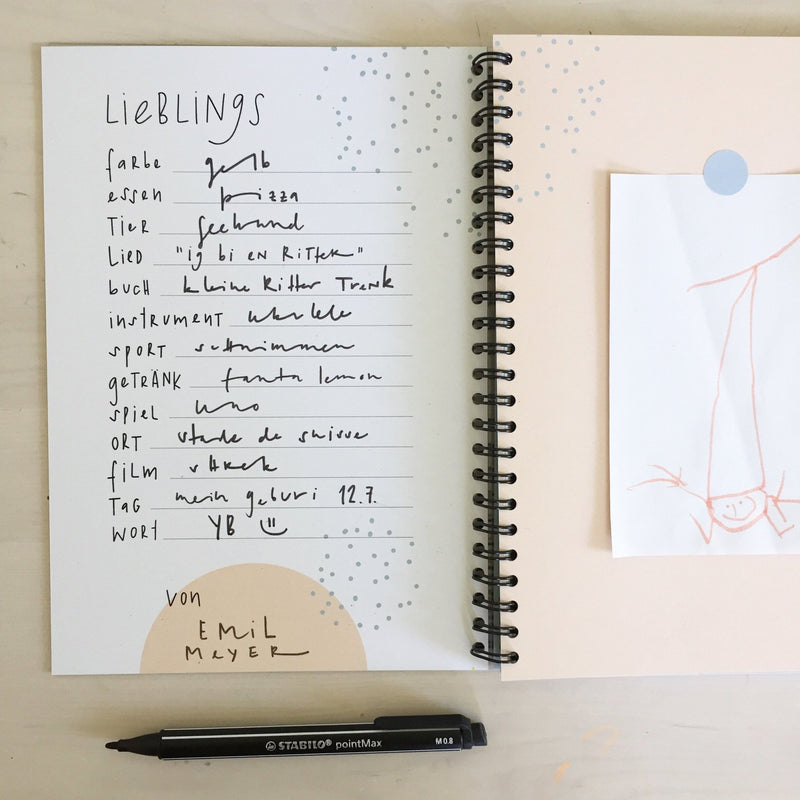 LIEBLINGS
farbe gelb
essen pizza
TIER seehund
LIED "ig bi en RiTTER"
buch kleine Ritter Trenk
instRUMENT ukulele
SPORT schwimmen
geTRÄNK fanta lemon
spiel uno
ORT stade de suisse
film shrek
TAG mein geburi 12.7.
WORT YB
von
EMiL
MeYER
STABILO® pointMax M 0.8